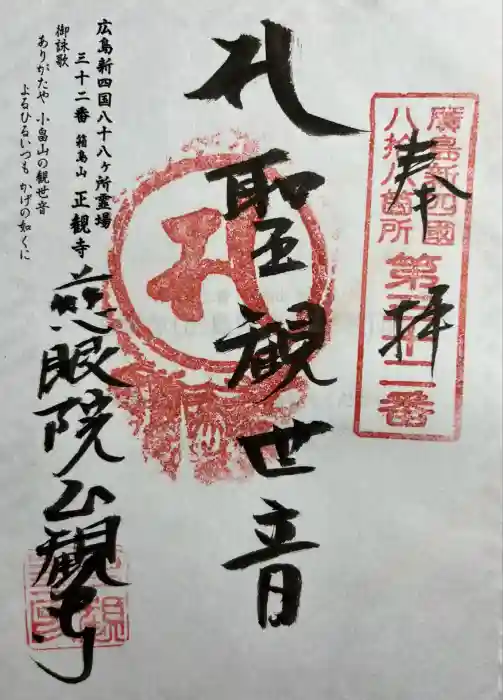 奉拝
廣島新四國
八拾八箇所
第三十二番
聖観世音
慈眼院正観寺
広島新四国八十八ヶ所霊場
三十二番 箱島山 正観寺
御詠歌
ありがたや 小畠山の観世音
よるひるいつも かげの如くに